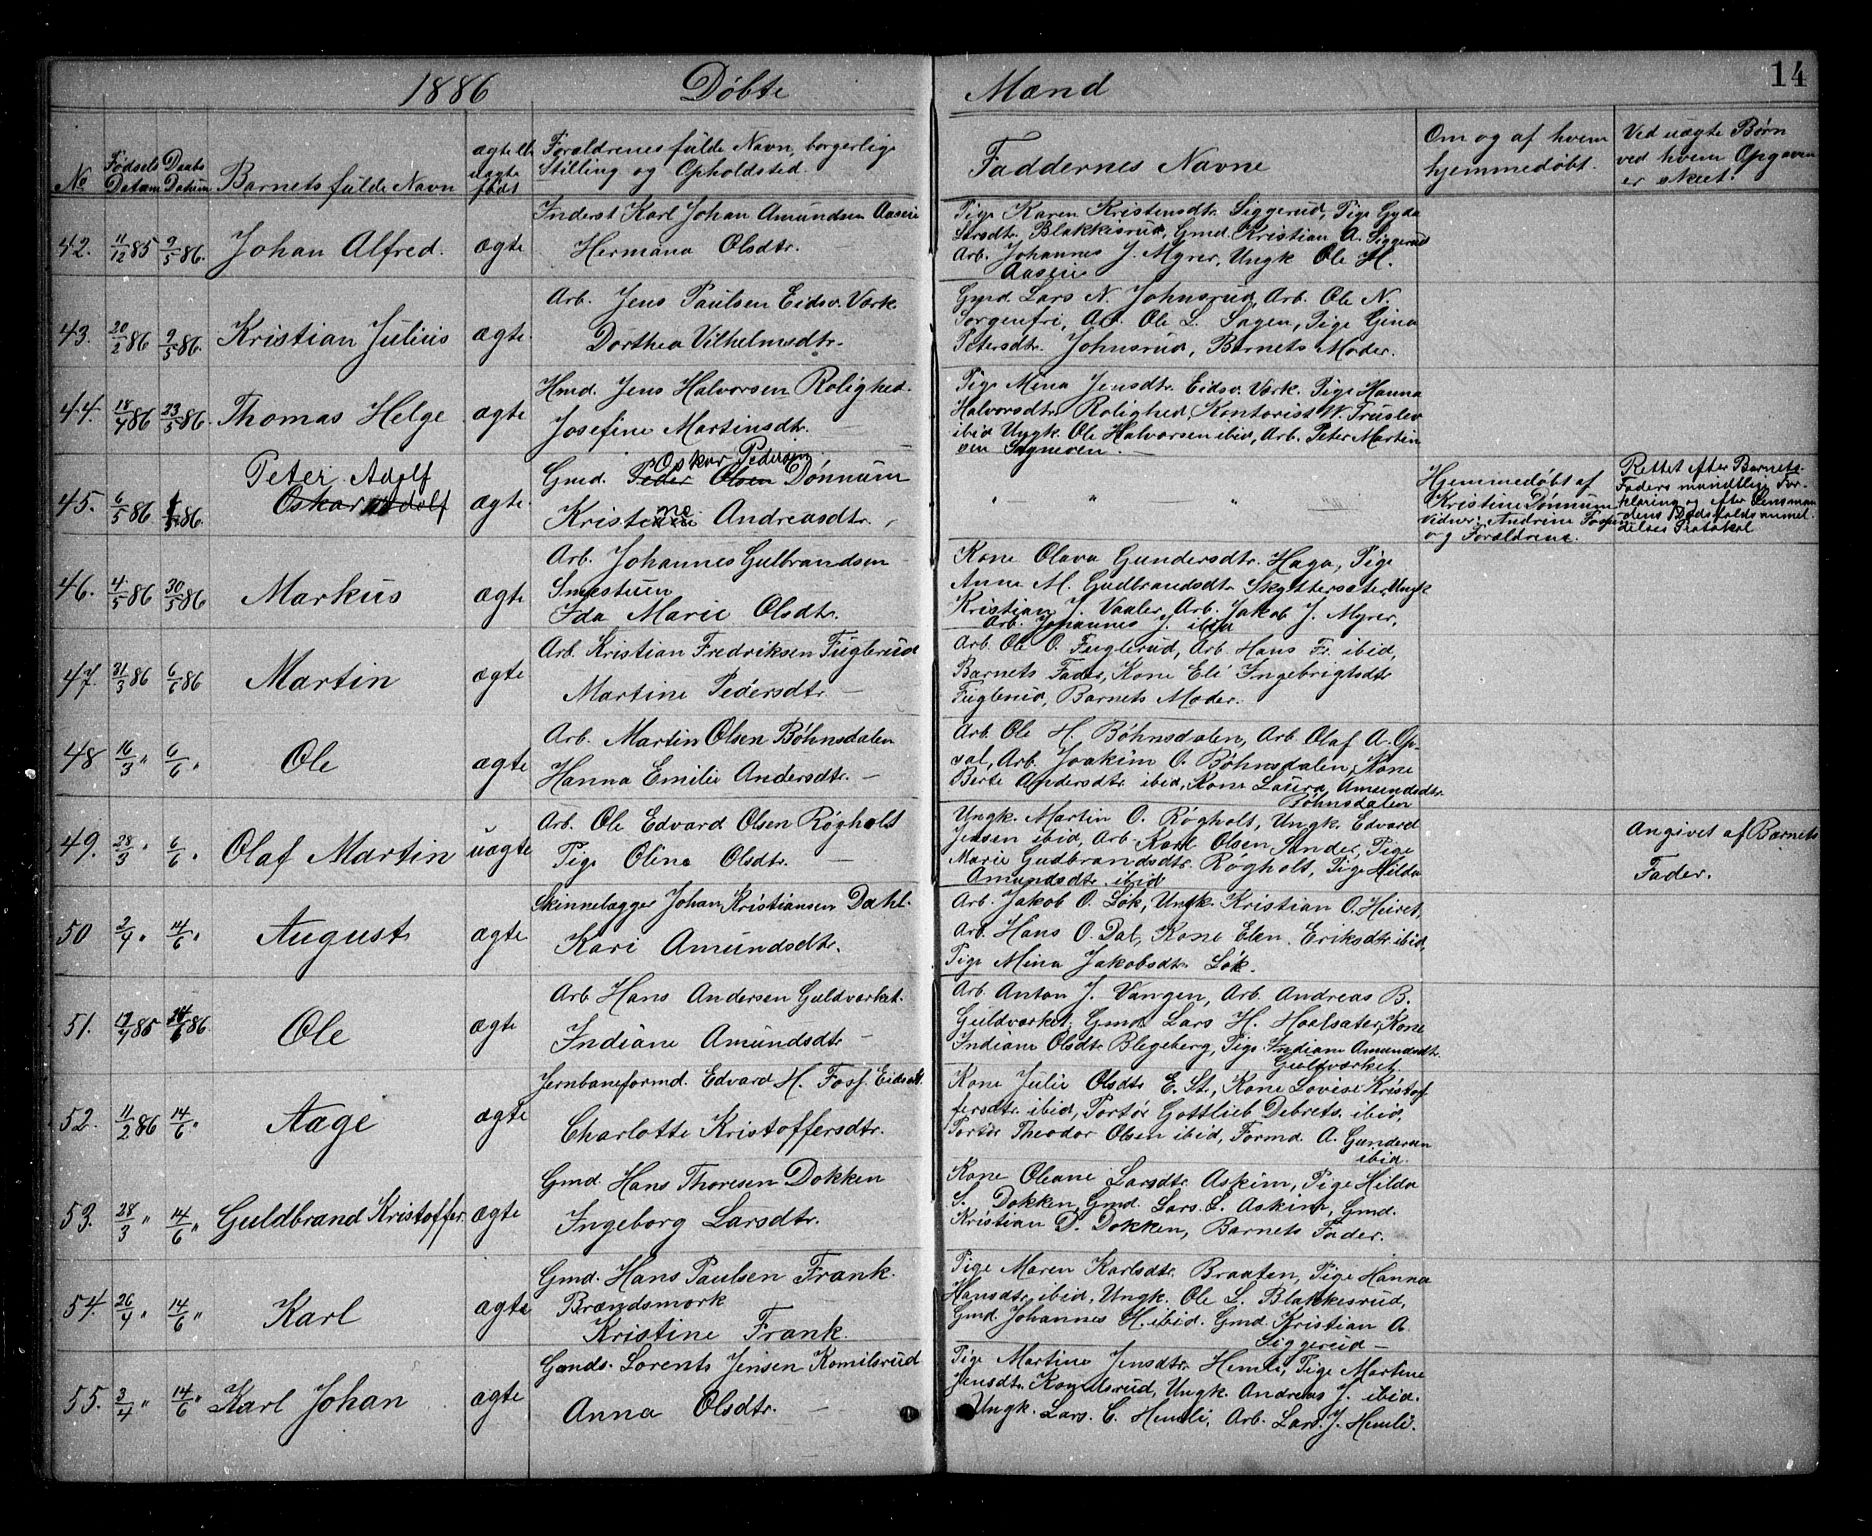 14
1886 Døbte Mænd
No
Fødsels Datum
Daabs Datum
Barnets fulde Navn
ægte ell. uægte født
Forældrenes fulde Navn, borgerlige Stilling og Opholdsted.
Faddernes Navne
Om og af hvem hjemmedøbt.
Ved uægte Børn ved hvem Opgaven er skeet.
42. 11/12 85 9/5 86. Johan Alfred. ægte
Inderst Karl Johan Amundsen Aaseie
Hermana Olsdtr.
Pige Karen Kristensdtr. Siggerud, Pige Gyda
Larsdtr. Blakkisrud, Gmd. Kristian A. Siggerud
Arb. Johannes J. Myrer, Ungk Ole H.
Aaseie
43. 20/2 86 9/5 86. Kristian Julius ægte.
Arb. Jens Paulsen Eidsv. Værk
Dorthea Vilhelmsdtr.
Gmd Lars N. Johnsrud, Arb. Ole N.
Sorgenfri, Arb. Ole L. Sagen, Pige Gina
Petersdtr. Johnsrud, Barnets Moder.
44. 18/4 86 23/5 86. Thomas Helge ægte
Hmd. Jens Halvorsen Rolighed.
Josefine Martinsdtr.
Pige Mina Jensdtr. Eidsv. Værk. Pige Hanna
Halvorsdtr. Rolighed, Kontorist W. Truslew
ibid Ungk. Ole Halvorsen ibid, Arb. Peter Martin
sen
45. 6/5 86 86. Peter Adolf
Oskar Adolf ægte.
Oskar Pedersen
Gmd. Peder Olsen Dønnum
Kristine Andreasdtr.
" " " "
Hjemmedøbt af
Kristine Dønnum
Vidner: Andrine
og Forældrene.
Rettet efter Barnets
Faders mundtlig For-
klaring og efter Lensman
dens Dødsfaldsanmel
delses Protokol
46. 4/5 86 30/5 86 Markus ægte
Arb. Johannes Gulbrandsen
Smestuen
Ida Marie Olsdtr.
Kone Olava Gundersdtr. Haga, Pige
Anne M. Gudbrandsdtr. Skyttersæter, Ungk
Kristian J. Vaaler, Arb. Jakob J. Myrer,
Arb. Johannes J. ibid
47. 31/3 86 6/6 86 Martin ægte
Arb. Kristian Fredriksen Fuglerud
Martine Pedersdtr. —
Arb. Ole O. Fuglerud, Arb. Hans Fr. ibid,
Barnets Fader, Kone Eli Ingebrigtsdtr
Fuglerud, Barnets Moder.
48 16/3 " 6/6 " Ole ægte
Arb. Martin Olsen Bøhnsdalen
Hanna Emilie Andersdtr. —
Arb. Ole H. Bøhnsdalen, Arb. Olaf A. Op-
sal, Arb. Joakim O. Bøhnsdalen, Kone
Berte Andersdtr ibid, Kone Laura Amundsdtr.
Bøhnsdalen
49. 28/3 " 6/6 " Olaf Martin uægte
Arb. Ole Edvard Olsen Røgholt
Pige Oline Olsdtr. —
Ungk. Martin O. Røgholt, Ungk. Edvard
Jensen ibid, Arb. Karl Olsen Sander, Pige
Marie Gudbrandsdtr. Røgholt, Pige Hilda
Amundsdtr. ibid
Angivet af Barnets
Fader.
50 2/4 " 14/6 " August ægte
Skinnelægger Johan Kristiansen Dahl.
Kari Amundsdtr.
Arb. Jakob O. Løk, Ungk. Kristian O. Heiret,
Arb. Hans O. Dal, Kone Elen Eriksdtr. ibid,
Pige Mina Jakobsdtr. Løk.
51. 85 14/6 86. Ole ægte
Arb Hans Andersen Guldværket.
Indiane Amundsdtr —
Arb. Anton J. Vangen, Arb. Andreas B.
Guldværket, Gmd. Lars H. Hoelsæter, Kone
Indiane Olsdtr Blegeberg, Pige Indiane Amundsdtr.
Guldværket
52. 11/2 86 14/6 " Aage ægte
Jernbaneformd. Edvard H. Foss, Eidsv. St.
Charlotte Kristoffersdtr.
Kone Julie Olsdtr E. St., Kone Lovise Kristof
fersdtr. ibid, Portør Gottlieb Debrets. ibid,
Portør Theodor Olsen ibid, Formd. A. Gundersen
ibid.
53. 28/3 " 14/6 " Guldbrand Kristoffer. ægte
Gmd. Hans Thoresen Dokken
Ingeborg Larsdtr.
Kone Oleane Larsdtr. Askim, Pige Hilda
S. Dokken, Gmd. Lars L. Askim, Gmd.
Kristian D. Dokken, Barnets Fader.
54. 26/4 " 14/6 " Karl ægte
Gmd. Hans Paulsen Frank.
Brændsmork
Kristine Frank.
Pige Maren Karlsdtr. Braaten, Pige Hanna
Hansdtr. ibid, Ungk. Ole L. Blakkisrud,
Gmd. Johannes H. ibid. Gmd. Kristian A.
Siggerud —
55. 3/4 " 14/6 " Karl Johan ægte
Gmds. Lorents Jensen Komilsrud
Anna Olsdtr. —
Pige Martine Jensdtr. Hemli, Pige Martine
Jensdtr. Komilsrud, Ungk. Andreas J. ibid.
Ungk. Lars C. Hemli, Arb. Lars J. Hemli.